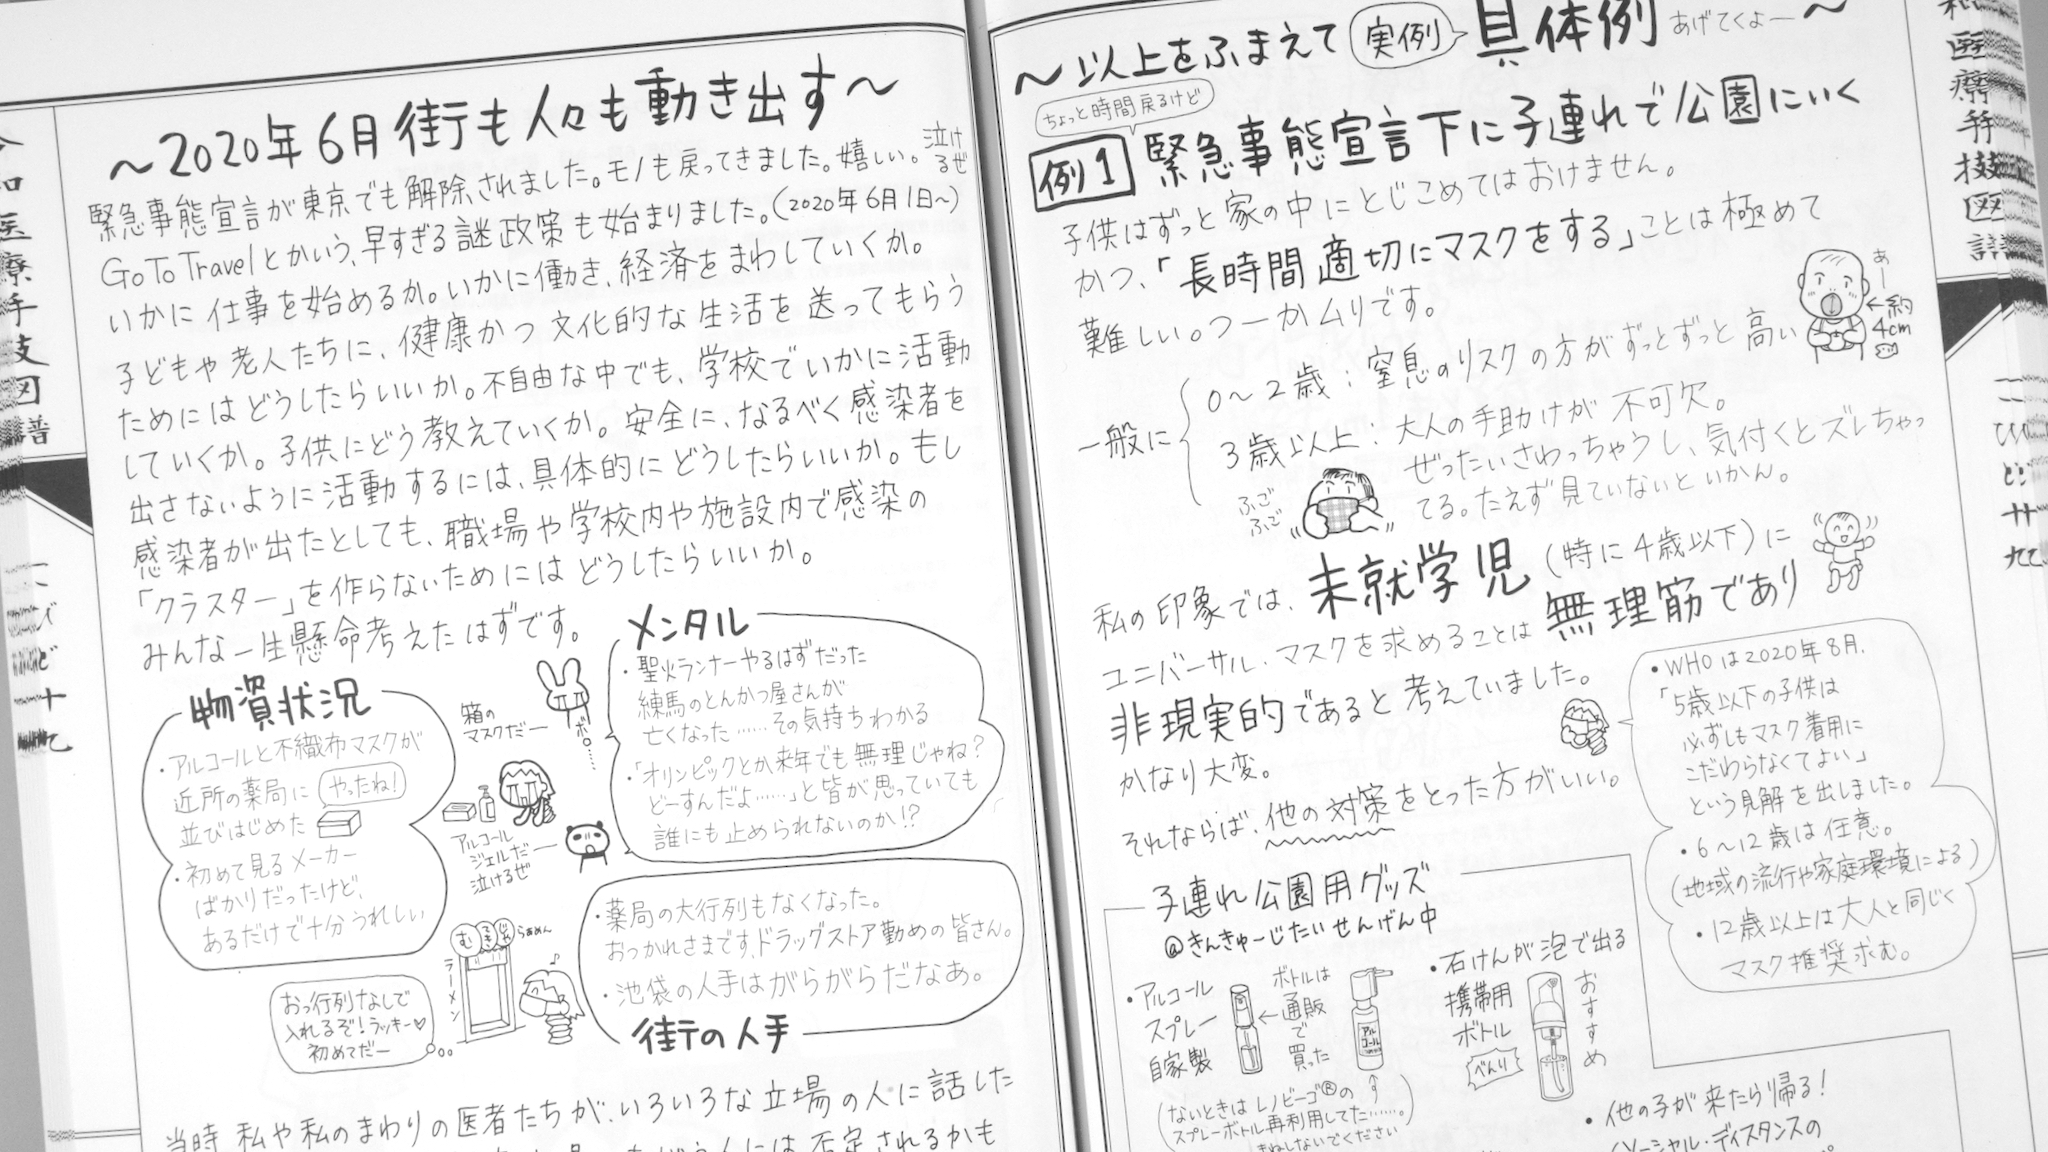 ～2020年6月 街も人々も動き出す～
緊急事態宣言が東京でも解除されました。モノも戻ってきました。嬉しい。
泣け
るぜ
GoToTravelとかいう、早すぎる謎政策も始まりました。(2020年6月1日～)
いかに仕事を始めるか。いかに働き、経済をまわしていくか。
子どもや老人たちに、健康かつ文化的な生活を送ってもらう
ためにはどうしたらいいか。不自由な中でも、学校でいかに活動
していくか。子供にどう教えていくか。安全に、なるべく感染者を
出さないように活動するには、具体的にどうしたらいいか。もし
感染者が出たとしても、職場や学校内や施設内で感染の
「クラスター」を作らないためにはどうしたらいいか。
みんな一生懸命考えたはずです。
物資状況
・アルコールと不織布マスクが
近所の薬局に
やったね!
並びはじめた
・初めて見るメーカー
ばかりだったけど、
あるだけで十分うれしい
箱の
マスクだー
ボロ……
アルコール
ジェルだー
泣けるぜ
メンタル
・聖火ランナーやるはずだった
練馬のとんかつ屋さんが
亡くなった……その気持ちわかる
・「オリンピックとか来年でも無理じゃね?
どーすんだよ……」と皆が思っていても
誰にも止められないのか!?
・薬局の大行列もなくなった。
おつかれさまです、ドラッグストア勤めの皆さん。
・池袋の人手はがらがらだなあ。
街の人手
らぁめん
ラーメン
おっ行列なしで
入れるぞ!ラッキー♡
初めてだー
当時私や私のまわりの医者たちが、いろいろな立場の人に話した
～以上をふまえて
実例
具体例
あげてくよー～
ちょっと時間戻るけど
例1
緊急事態宣言下に子連れで公園にいく
子供はずっと家の中にとじこめてはおけません。
かつ、「長時間適切にマスクをする」ことは極めて
難しい。つーかムリです。
あー
←約
4cm
一般に
0～2歳:窒息のリスクの方がずっとずっと高い
3歳以上:大人の手助けが不可欠。
ぜったいさわっちゃうし、気付くとズレちゃっ
てる。たえず見ていないといかん。
ふご
ふご
私の印象では、未就学児(特に4歳以下)に
ユニバーサル・マスクを求めることは無理筋であり
非現実的であると考えていました。
かなり大変。
それならば、他の対策をとった方がいい。
・WHOは2020年8月、
「5歳以下の子供は
必ずしもマスク着用に
こだわらなくてよい」
という見解を出しました。
・6～12歳は任意。
(地域の流行や家庭環境による)
・12歳以上は大人と同じく
マスク推奨求む。
子連れ公園用グッズ
@きんきゅーじたいせんげん中
・アルコール
スプレー
自家製
ボトルは
←通販
で
買った
アル
コール
(ないときはレノビーゴ®の
スプレーボトル再利用してた……。
まねしないでください)
・石けんが泡で出る
携帯用
ボトル
べんり
おすすめ
・他の子が来たら帰る!
(ソーシャル・ディスタンスの